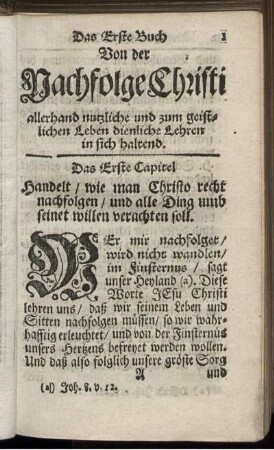 Das Erste Buch 1
Von der
Nachfolge Christi
allerhand nutzliche und zum geist-
lichen Leben dienliche Lehren
in sich haltend.
Das Erste Capitel
Handelt / wie man Christo recht
nachfolgen / und alle Ding umb
seinet willen verachten soll.
WEr mir nachfolget /
wird nicht wandlen /
im Finsternus / sagt
unser Heyland (a). Diese
Worte JEsu Christi
lehren uns / daß wir seinem Leben und
Sitten nachfolgen müssen / so wir wahr-
hafftig erleuchtet / und von der Finsternüs
unsers Hertzens befreyet werden wollen.
Und daß also folglich unsere gröste Sorg
A und
(a) Joh. 8. v. 12.